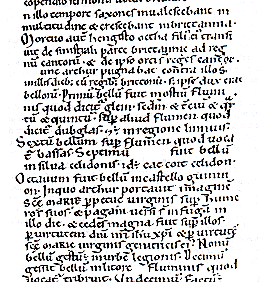 in illo tempore saxones inualescebant in
multitudine & crescebant in brittannia.
Mortuo aut hengisto octha fili ei transi
uit de sinistrali parte brittanniæ ad reg
nu cantoru. & de ipso orti reges cantor.
Tunc arthur pugnabat contra illos.
in illis dieb: cu regib: brittonu. s; ipse dux erat
belloru. Primu bellu fuit in ostiu flumi
nis quod dicit glein. scdm & tciu & qr
tu & quintu. sup aliud flumen quod
dicit dubglas. & e in regione linnuis.
Sextu bellum sup flumen quod uoca
t bassas. Septimu fuit bellu
in silua celidonis. id e cat coit celidon.
Octauum fuit bellu in castello guinni
on. In quo arthur portauit imagine
sce mariæ ppetuæ uirginis sup hume
ros suos. & pagani uersi s in fuga in
illo die. & cedes magna fuit sup illos.
p uirtute dni nri ihu xpi & p uirtute
sce mariæ uirginis genitricis ei. Nonu
bellu gestu e in urbe legionis. Decimu
gessit bellu in litore fluminis quod
uocatur tribruit. Undecimu factu